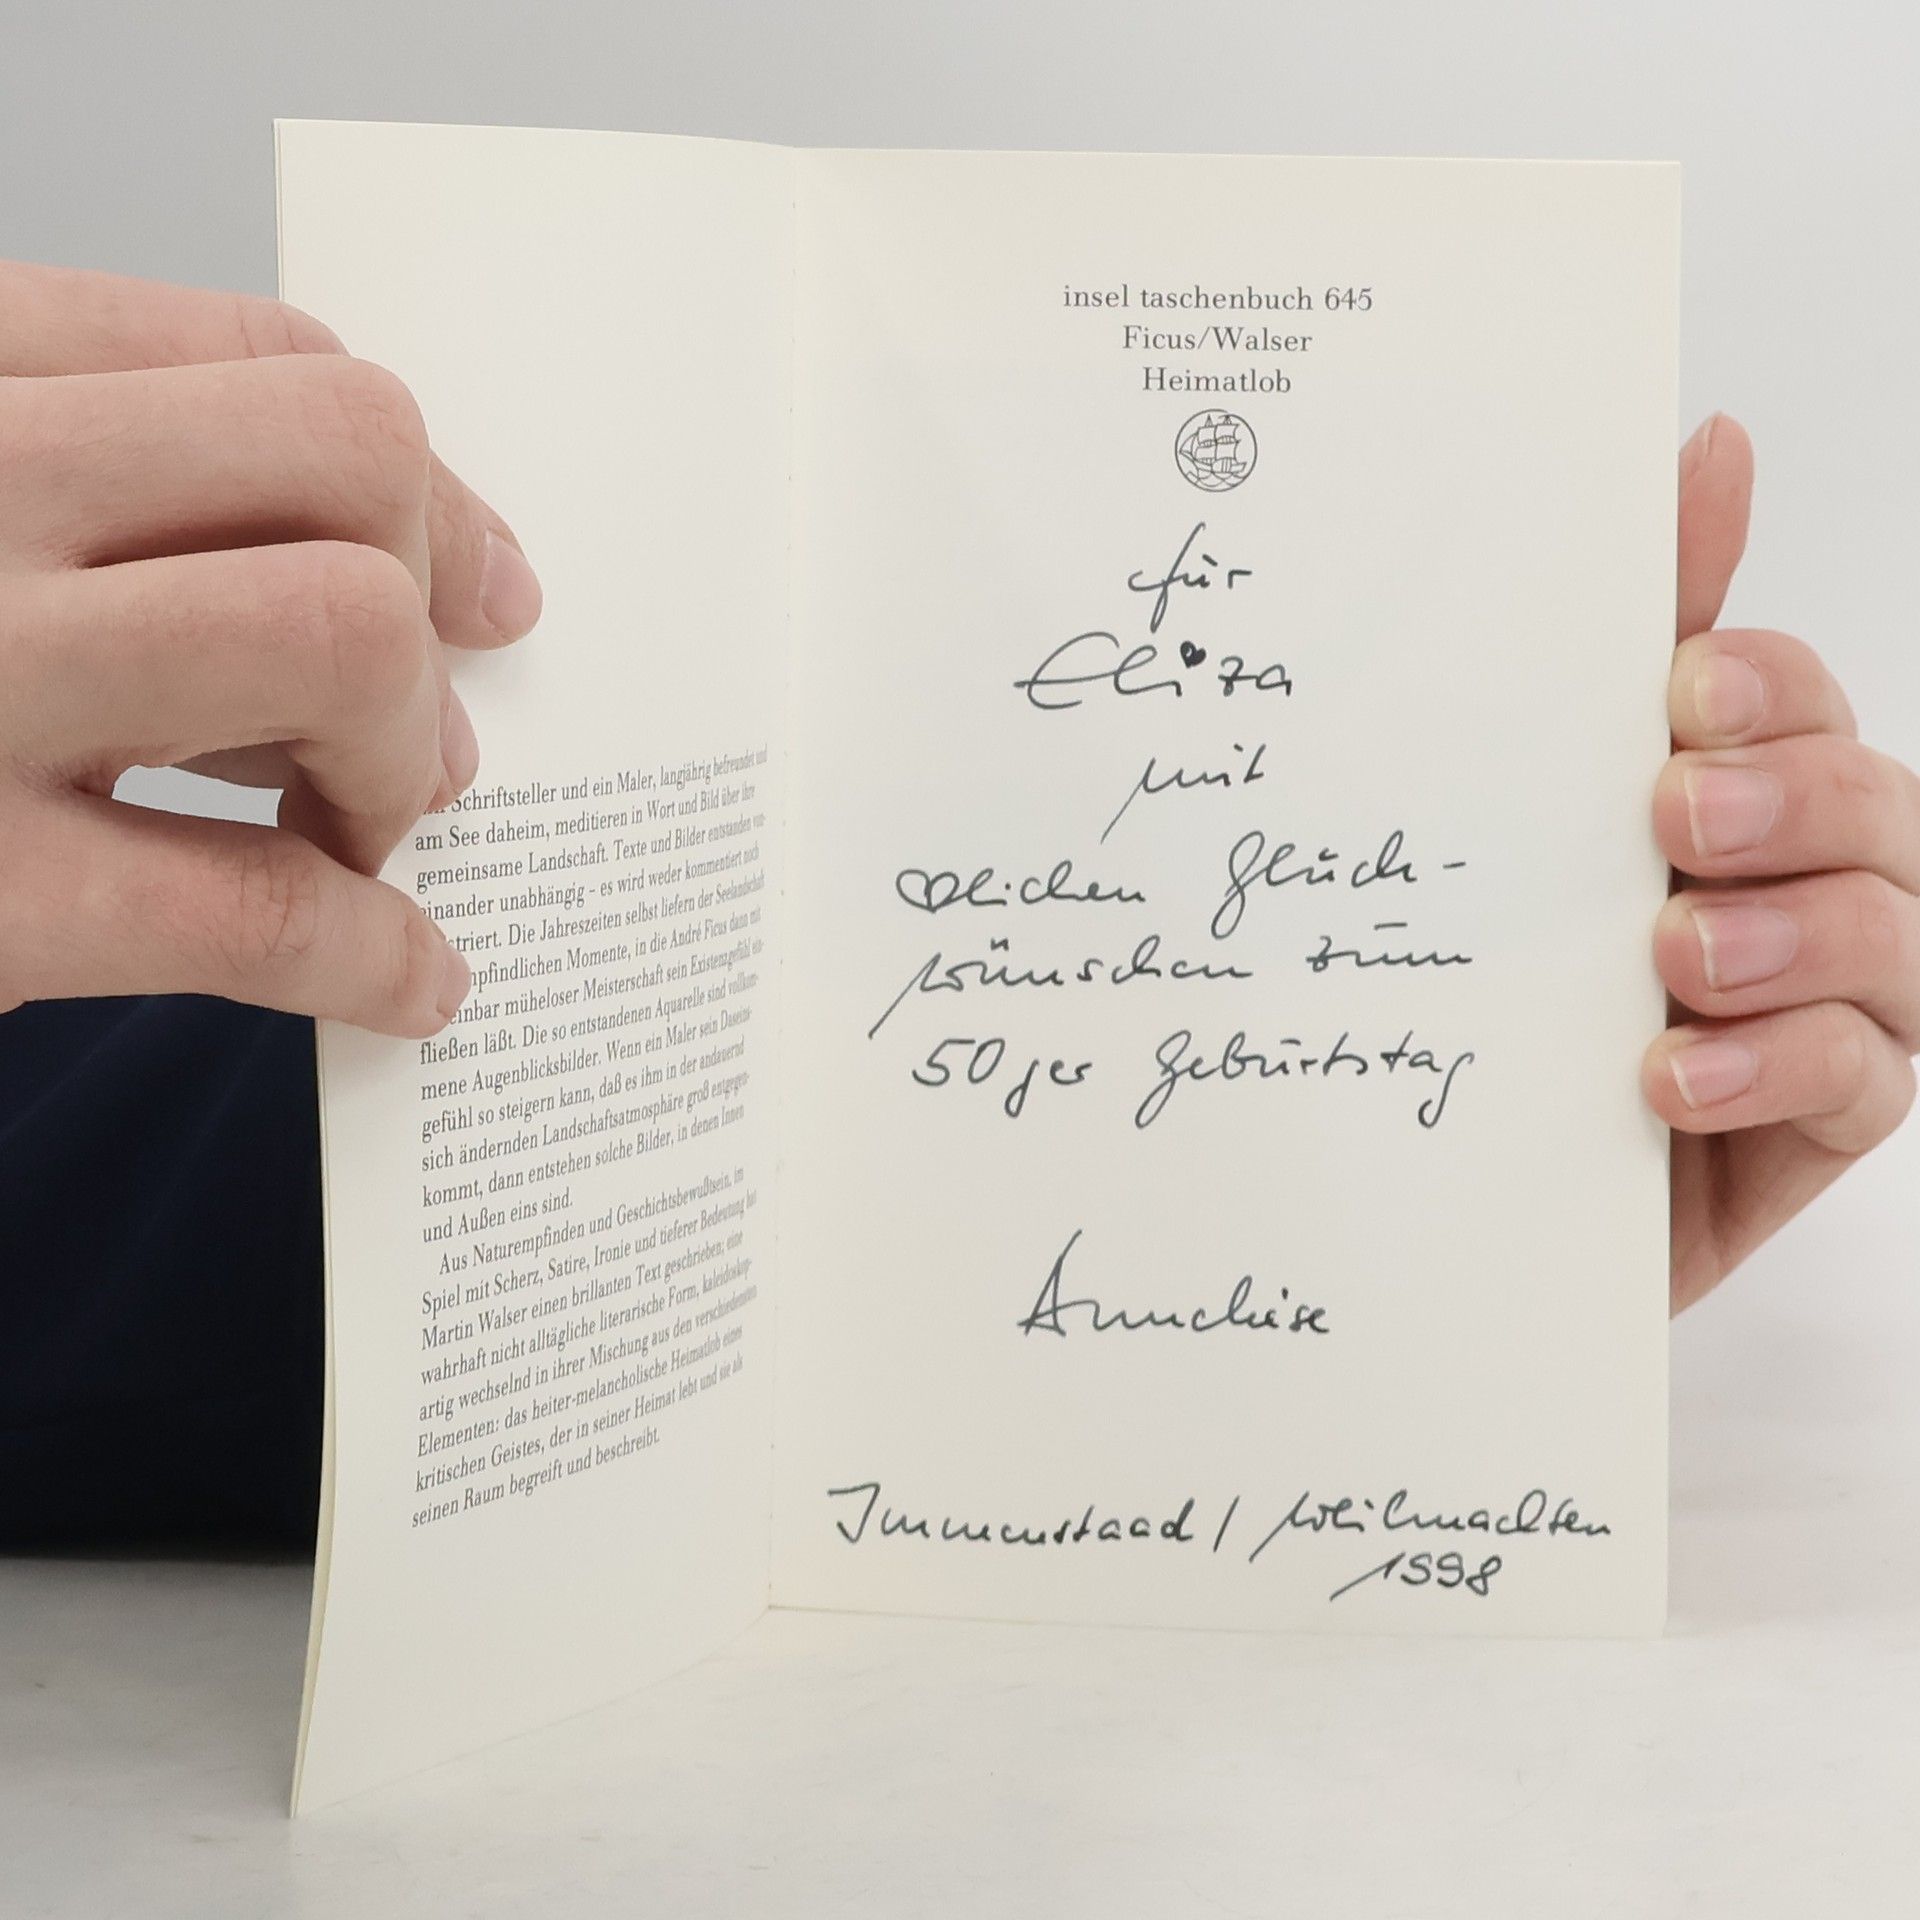 Schriftsteller und ein Maler, langjährig befreundet und
am See daheim, meditieren in Wort und Bild über ihre
gemeinsame Landschaft. Texte und Bilder entstanden von-
einander unabhängig – es wird weder kommentiert noch
striert. Die Jahreszeiten selbst liefern der Seelandschaft
mpfindlichen Momente, in die André Ficus dann mit
einbar müheloser Meisterschaft sein Existenzgefühl ein-
fließen läßt. Die so entstandenen Aquarelle sind vollkom-
mene Augenblicksbilder. Wenn ein Maler sein Daseins-
gefühl so steigern kann, daß es ihm in der andauernd
sich ändernden Landschaftsatmosphäre groß entgegen-
kommt, dann entstehen solche Bilder, in denen Innen
und Außen eins sind.
Aus Naturempfinden und Geschichtsbewußtsein, im
Spiel mit Scherz, Satire, Ironie und tieferer Bedeutung hat
Martin Walser einen brillanten Text geschrieben; eine
wahrhaft nicht alltägliche literarische Form, kaleidoskop-
artig wechselnd in ihrer Mischung aus den verschiedensten
Elementen: das heiter-melancholische Heimatlob eines
kritischen Geistes, der in seiner Heimat lebt und sie als
seinen Raum begreift und beschreibt.
insel taschenbuch 645
Ficus/Walser
Heimatlob
für
Eliza
mit
♡lichen Glück-
wünschen zum
50ger Geburtstag
Anneliese
Immenstaad / Weihnachten
1998